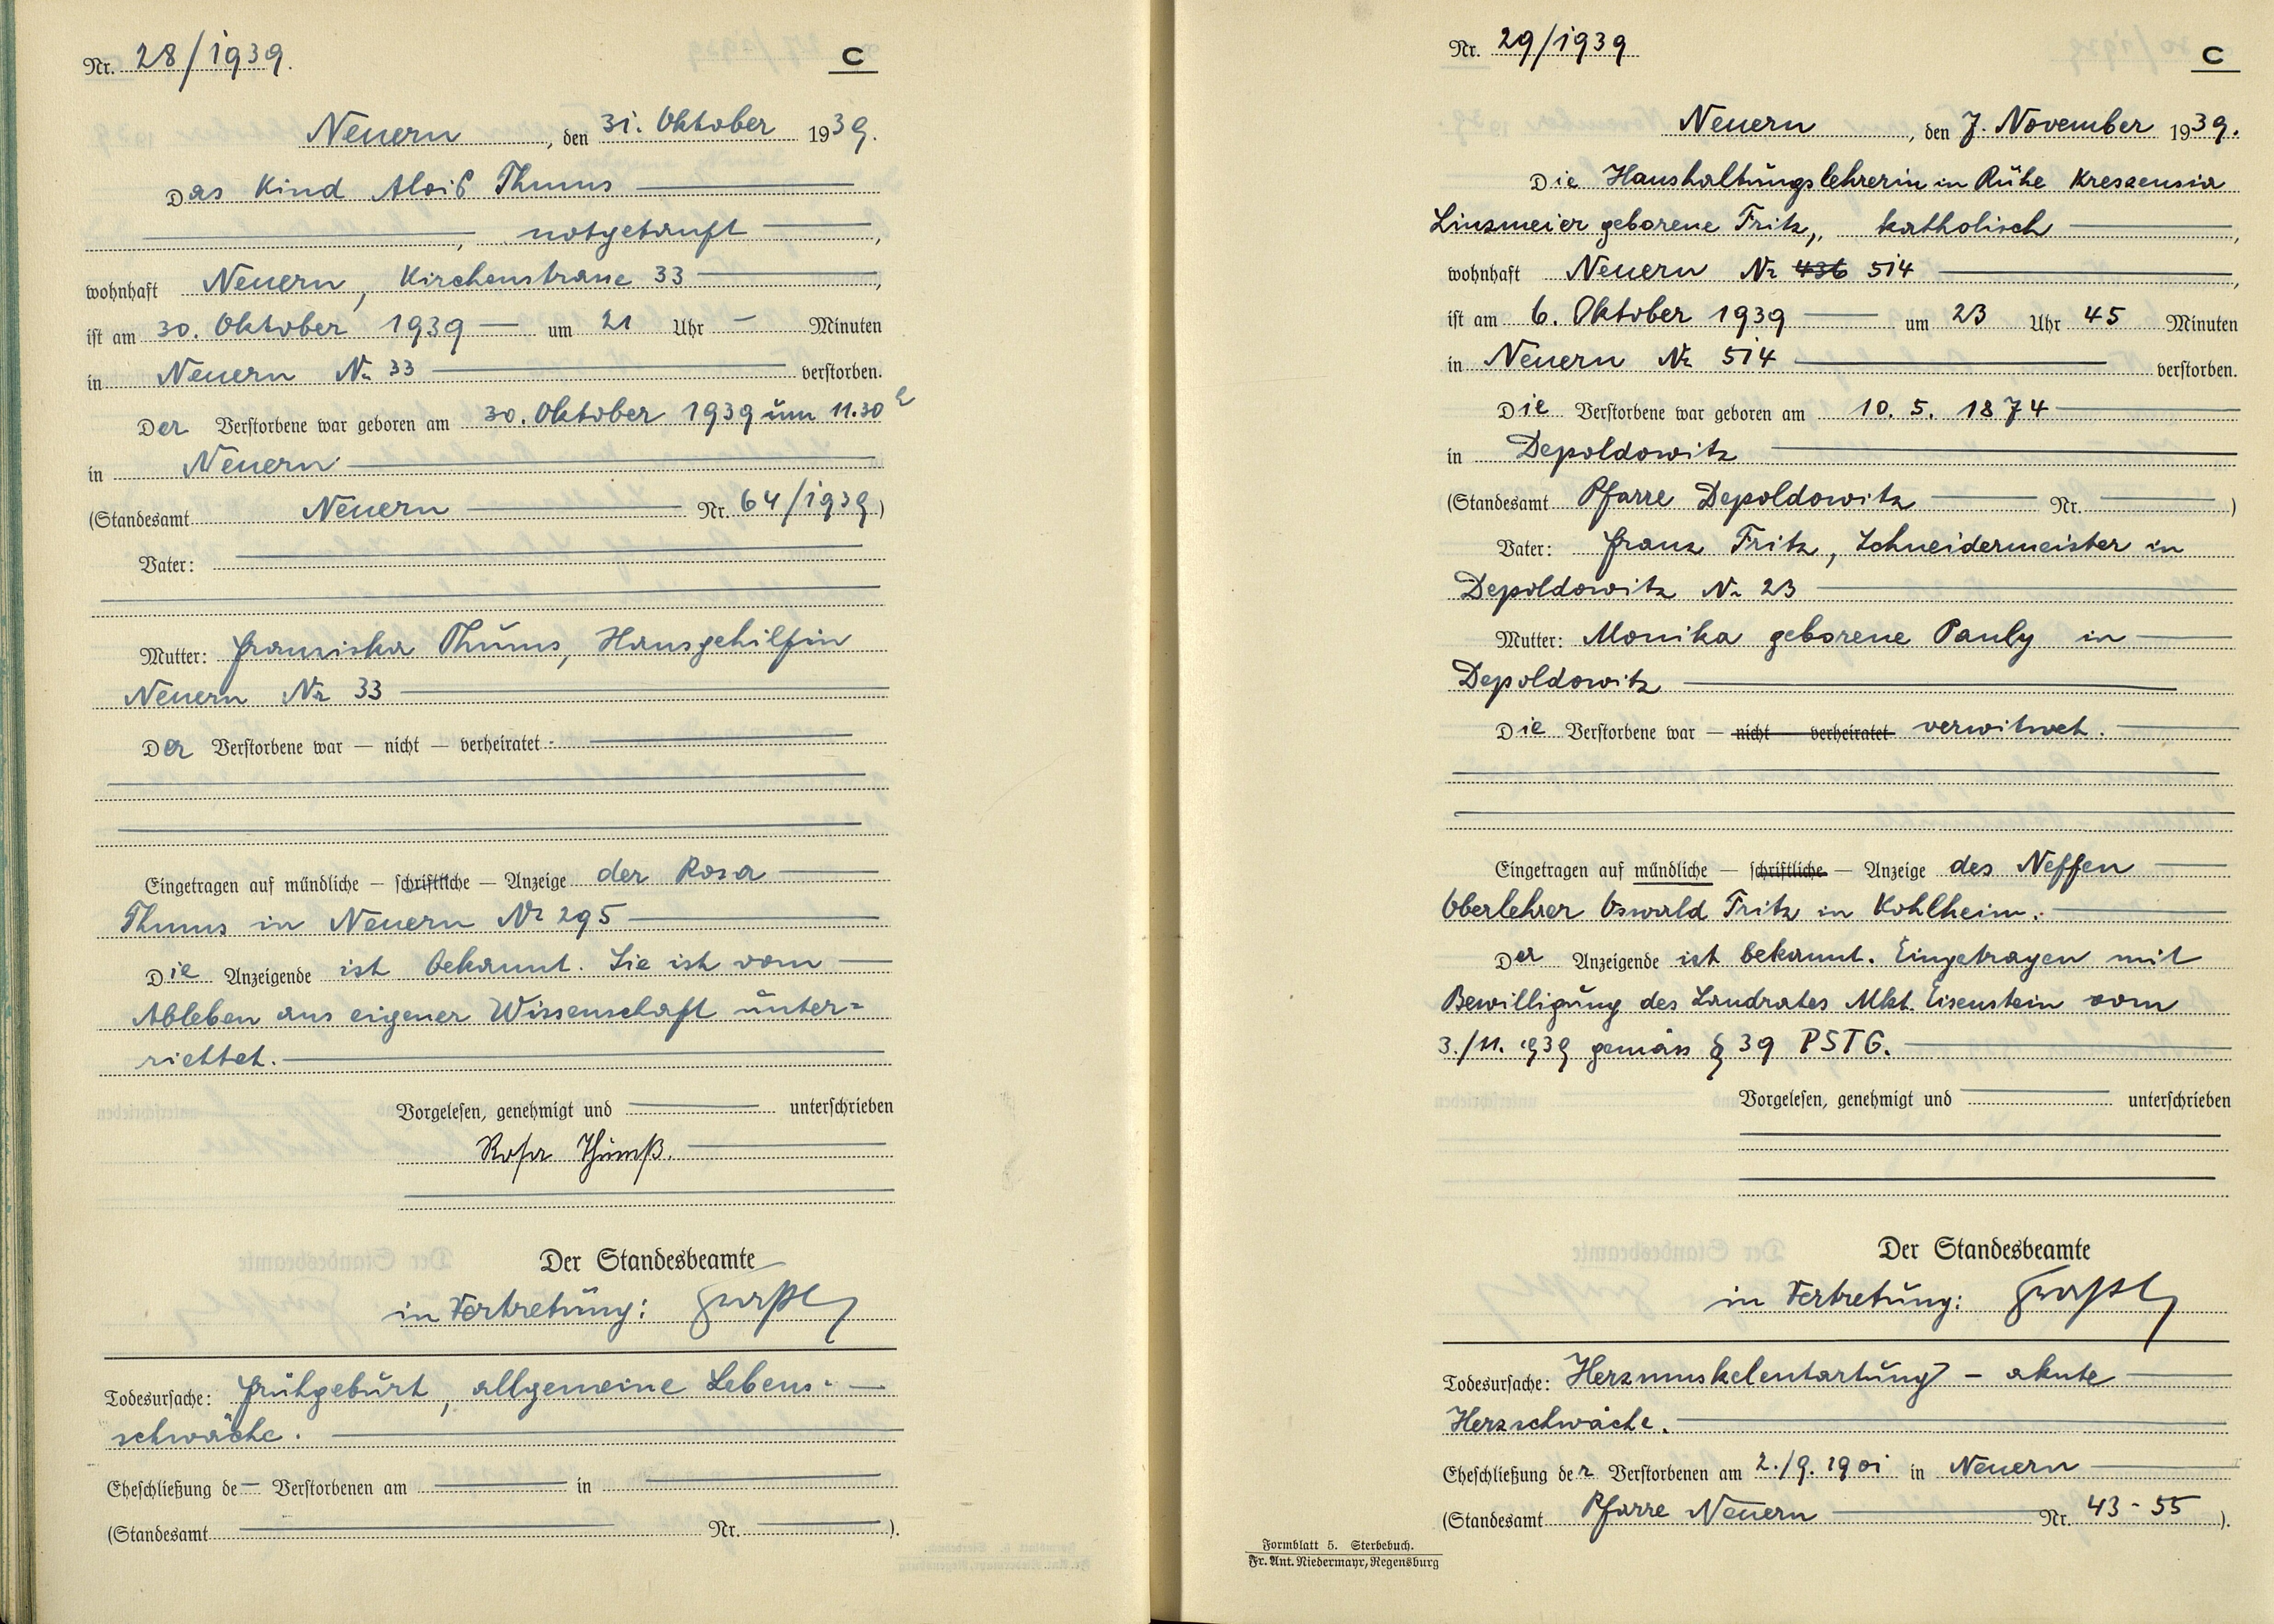 Nr. 28/1939.
C
Neuern, den 31. Oktober 1939.
Das Kind Alois Thums
, notgetauft,
wohnhaft Neuern, Kirchenstrasse 33,
ist am 30. Oktober 1939 um 21 Uhr - Minuten
in Neuern Nr 33 verstorben.
Der Verstorbene war geboren am 30. Oktober 1939 um 11.30 h
in Neuern
(Standesamt Neuern Nr. 64/1939)
Vater:
Mutter: Franziska Thums, Hausgehilfin
Neuern Nr 33
Der Verstorbene war — nicht — verheiratet
Eingetragen auf mündliche — schriftliche — Anzeige der Rosa
Thums in Neuern Nr 295
Die Anzeigende ist bekannt. Sie ist vom
Ableben aus eigener Wissenschaft unter=
richtet.
Vorgelesen, genehmigt und unterschrieben
Rosa Thumß.
Der Standesbeamte
in Vertretung:
Todesursache: Frühgeburt, allgemeine Lebens-
schwäche.
Eheschließung de- Verstorbenen am in
(Standesamt Nr. ).
Nr. 29/1939
C
Neuern, den 7. November 1939.
Die Haushaltungslehrerin in Ruhe Kreszensia
Linzmeier geborene Fritz, katholisch,
wohnhaft Neuern Nr 436 514,
ist am 6. Oktober 1939 um 23 Uhr 45 Minuten
in Neuern Nr 514 verstorben.
Die Verstorbene war geboren am 10. 5. 1874
in Depoldowitz
(Standesamt Pfarre Depoldowitz Nr. )
Vater: Franz Fritz, Schneidermeister in
Depoldowitz Nr 23
Mutter: Monika geborene Pauly in
Depoldowitz
Die Verstorbene war — nicht verheiratet verwitwet.
Eingetragen auf mündliche — schriftliche — Anzeige des Neffen
Oberlehrer Oswald Fritz in Kohlheim.
Der Anzeigende ist bekannt. Eingetragen mit
Bewilligung des Landrates Mkt. Eisenstein vom
3./11. 1939 gemäss § 39 PSTG.
Vorgelesen, genehmigt und unterschrieben
Der Standesbeamte
in Vertretung:
Todesursache: Herzmuskelentartung - akute
Herzschwäche.
Eheschließung der Verstorbenen am 2./9. 1901 in Neuern
(Standesamt Pfarre Neuern Nr. 43-55 ).
Formblatt 5. Sterbebuch.
Fr. Ant. Niedermayr, Regensburg